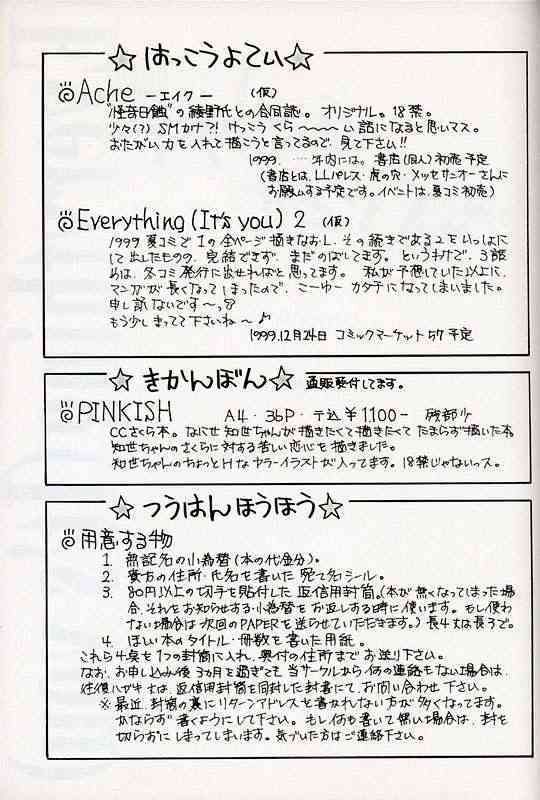 ☆はっこうよてい☆
Ache ーエイクー (仮)
"怪奇日蝕"の綾野氏との合同誌。オリジナル。18禁。
少々(?)SMカナ?!けっこうくら〜〜〜い話になると思いマス。
おたがい力を入れて描こうと言ってるので、見て下さい!!
1999. …年内には。書店(個人)初売予定
(書店とは、LLパレス・虎の穴・メッセサンオーさんに
お願いする予定です。イベントは、夏コミ初売)
Everything (It's you) 2 (仮)
1999夏コミで1の全ページ描きなおし、その続きである2をいっしょに
して出したものの、完結できず、まだのばしてます。というわけで、3部
めは、冬コミ発行に出せればと思ってます。私が予想していた以上に、
マンガが長くなってしまったので、こーゆーカタチになってしまいました。
申し訳ないです〜っ
もう少しまってて下さいね〜♪
1999.12月24日 コミックマーケット57予定
☆きかんぼん☆ 通販受付してます。
PINKISH A4・36P・〒込¥1,100- 残部少
CCさくら本。なにせ知世ちゃんが描きたくて描きたくてたまらず描いた本。
知世ちゃんのさくらに対する苦しい恋心を描きました。
知世ちゃんのちょっとHなカラーイラストが入ってます。18禁じゃないっス。
☆つうはんほうほう☆
用意する物
1. 無記名の小為替(本の代金分)。
2. 貴方の住所・氏名を書いた宛て名シール。
3. 80円以上の切手を貼付した返信用封筒。(本が無くなってしまった場
合、それをお知らせする・小為替をお返しする時に使います。もし使わ
ない場合は次回のPAPERを送らせていただきます。)長4又は長3で。
4. ほしい本のタイトル・冊数を書いた用紙。
これら4点を1つの封筒に入れ、奥付の住所までお送り下さい。
なお、お申し込み後3ヵ月を過ぎても当サークルから何の連絡もない場合は、
往復ハガキ又は、返信用封筒を同封した封書にて、お問い合わせ下さい。
※最近、封筒の裏にリターンアドレスを書かれない方が多くなってます。
かならず書くようにして下さい。もし何も書いて無い場合は、封を
切らずにしまってしまいます。気づいた方はご連絡下さい。